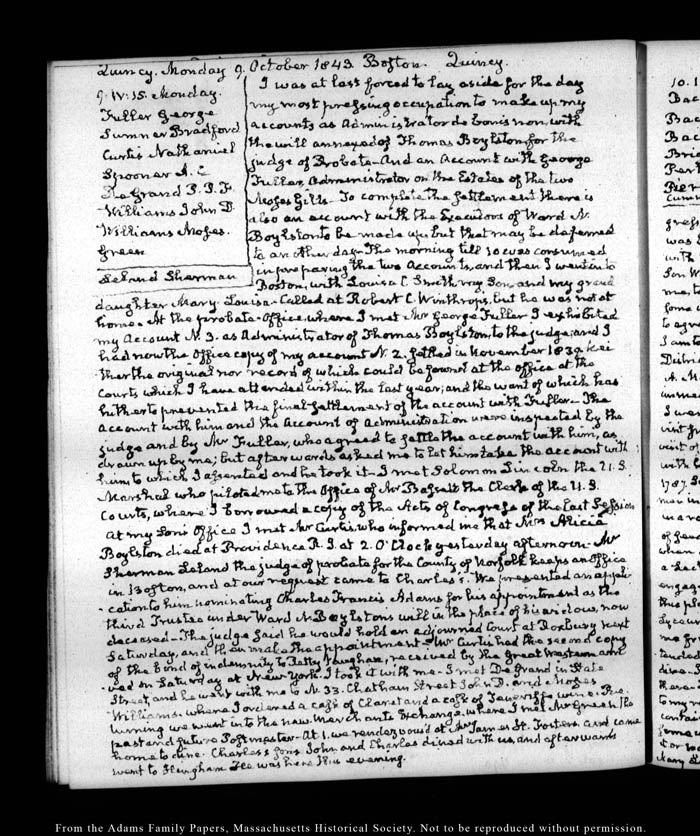 Quincy. Monday 9. October 1843. Boston. Quincy.
9. IV:15. Monday.
Fuller George
Sumner Bradford
Curtis Nathaniel
Spooner A. C
De Grand P. P. F.
Williams John D.
Williams Moses.
Green
Leland Sherman
I was at last forced to lay aside for the day
my most pressing occupation to make up my
accounts as Administrator de bonis non with
the will annexed of Thomas Boylston for the
judge of Probate_ And an Account with George
Fuller, Administrator on the Estates of the two
Moses Gills_ To complete the settlement there is
also an account with the Executors of Ward N.
Boylston to be made up but that may be deferred
to another day_ The morning till 10 was consumed
in preparing the two Accounts, and then I went in to
Boston, with Louisa C. Smith my Son, and my grand
daughter Mary-Louisa_ Called at Robert C. Winthrop's, but he was not at
home. At the probate-Office, where I met Mr George Fuller I exhibited
my Account N. 3. as Administrator of Thomas Boylston, to the judge, and I
had now the Office copy of my account N. 2. settled in November 1832 nei
ther the original nor record of which could be found at the office at the
Courts which I have attended within the last year; and the want of which has
hitherto prevented the final settlement of the account with Fuller_ The
account with him and the Account of Administration were inspected by the
judge and by Mr Fuller, who agreed to settle the account with him, as
drawn up by me; but afterwards asked me to let him take the account with
him, to which I assented and he took it_ I met Solomon Lincoln the U.S.
Marshal who piloted me to the Office of Mr Bassett the Clerk of the U.S.
Courts, where I borrowed a copy of the Acts of Congress of the last Session
At my Son's Office I met Mr Curtis, who informed me that Mrs Alicia
Boylston died at Providence R. I. at 2. O'Clock yesterday afternoon_ Mr
Sherman Leland the judge of probate for the County of Norfolk keeps an Office
in Boston, and at our request came to Charles's. We presented an appli-
-cation to him nominating Charles Francis Adams for his appointment as the
third Trustee under Ward N. Boylston's will in the place of his widow, now
deceased_ The judge said he would hold an adjourned Court at Roxbury next
Saturday, and then make the appointment_ Mr Curtis had the second copy
of the bond of indemnity to Petty Vaughan, received by the Great Western arri
ved on Saturday at New-York. I took it with me_ I met De Grand in State
Street, and he went with me to N. 33. Chatham Street John D. and Moses
Williams, where I ordered a case of Claret and a case of Teneriffe wine. Re
turning we went into the new Merchants Exchange, where I met Mr Green the
past and future Postmaster_ At 1. we rendezvous'd at Mr James H. Foster's and came
home to dine. Charles's sons John and Charles dined with us, and afterwards
went to Hingham He was here this evening.
From the Adams Family Papers, Massachusetts Historical Society. Not to be reproduced without permission.